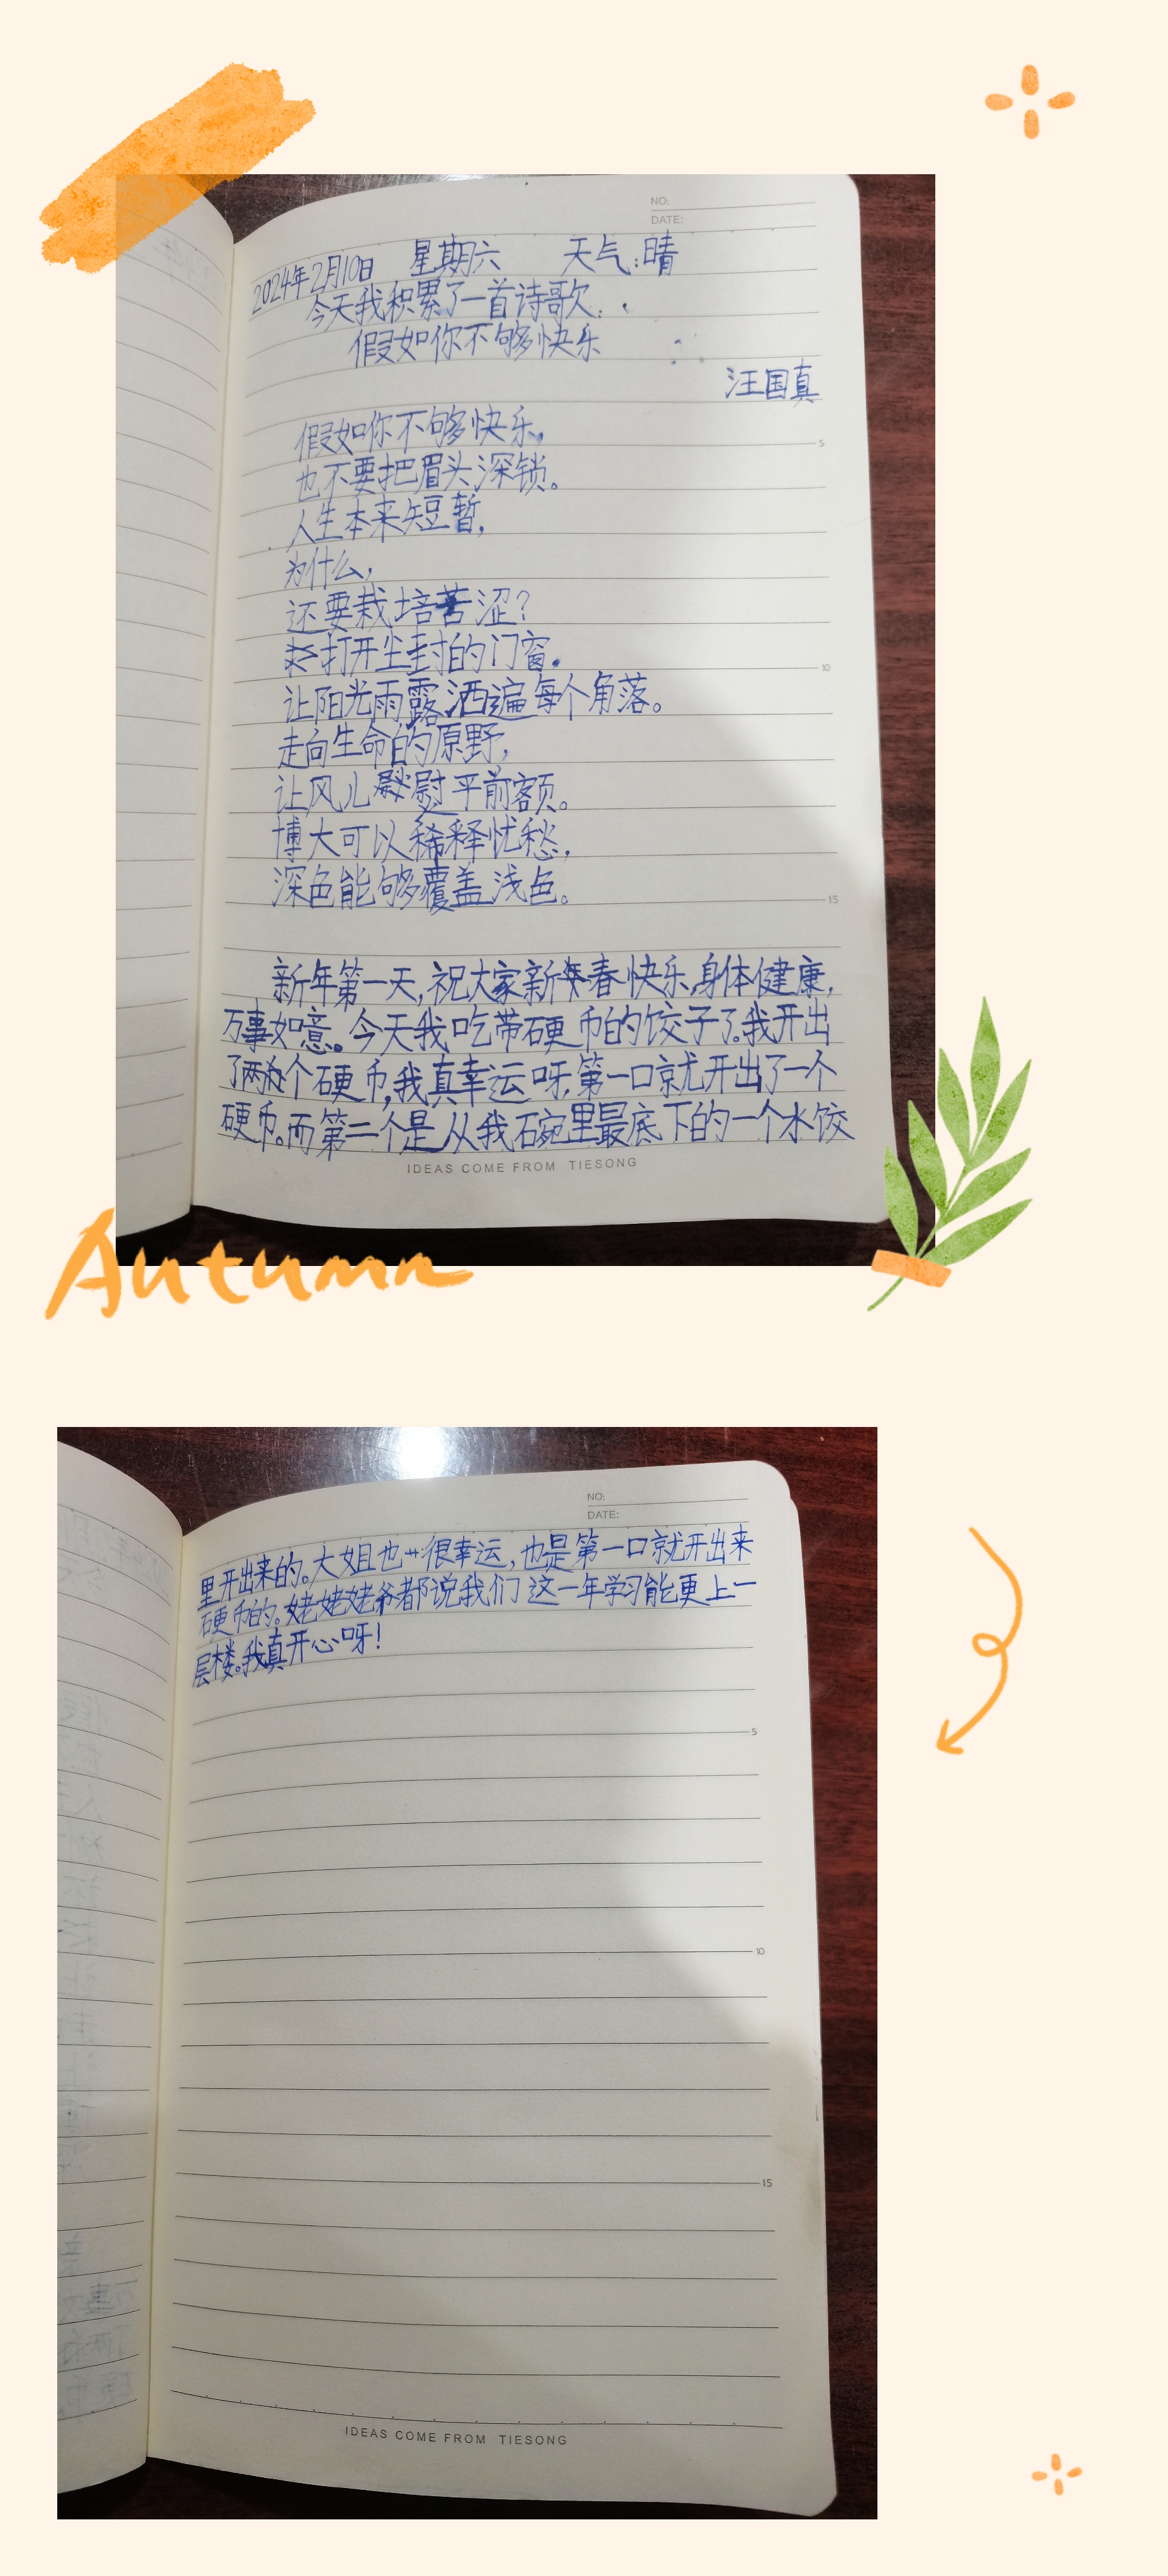 NO:
DATE:
2024年2月10日 星期六 天气:晴
今天我积累了一首诗歌.
假如你不够快乐
汪国真
假如你不够快乐,
也不要把眉头深锁。
人生本来短暂,
为什么,
还要栽培苦涩?
打开尘封的门窗.
让阳光雨露洒遍每个角落。
走向生命的原野,
让风儿慰平前额。
博大可以稀释忧愁,
深色能够覆盖浅色。
新年第一天,祝大家新春快乐,身体健康,
万事如意。今天我吃带硬币的饺子了。我开出
了两个硬币,我真幸运呀,第一口就开出了一个
硬币。而第二个是从我碗里最底下的一个水饺
5
10
15
IDEAS COME FROM TIESONG
Autumn
NO:
DATE:
里开出来的。大姐也很幸运,也是第一口就开出来
硬币的。姥姥姥爷都说我们这一年学习能更上一
层楼。我真开心呀!
5
10
15
IDEAS COME FROM TIESONG